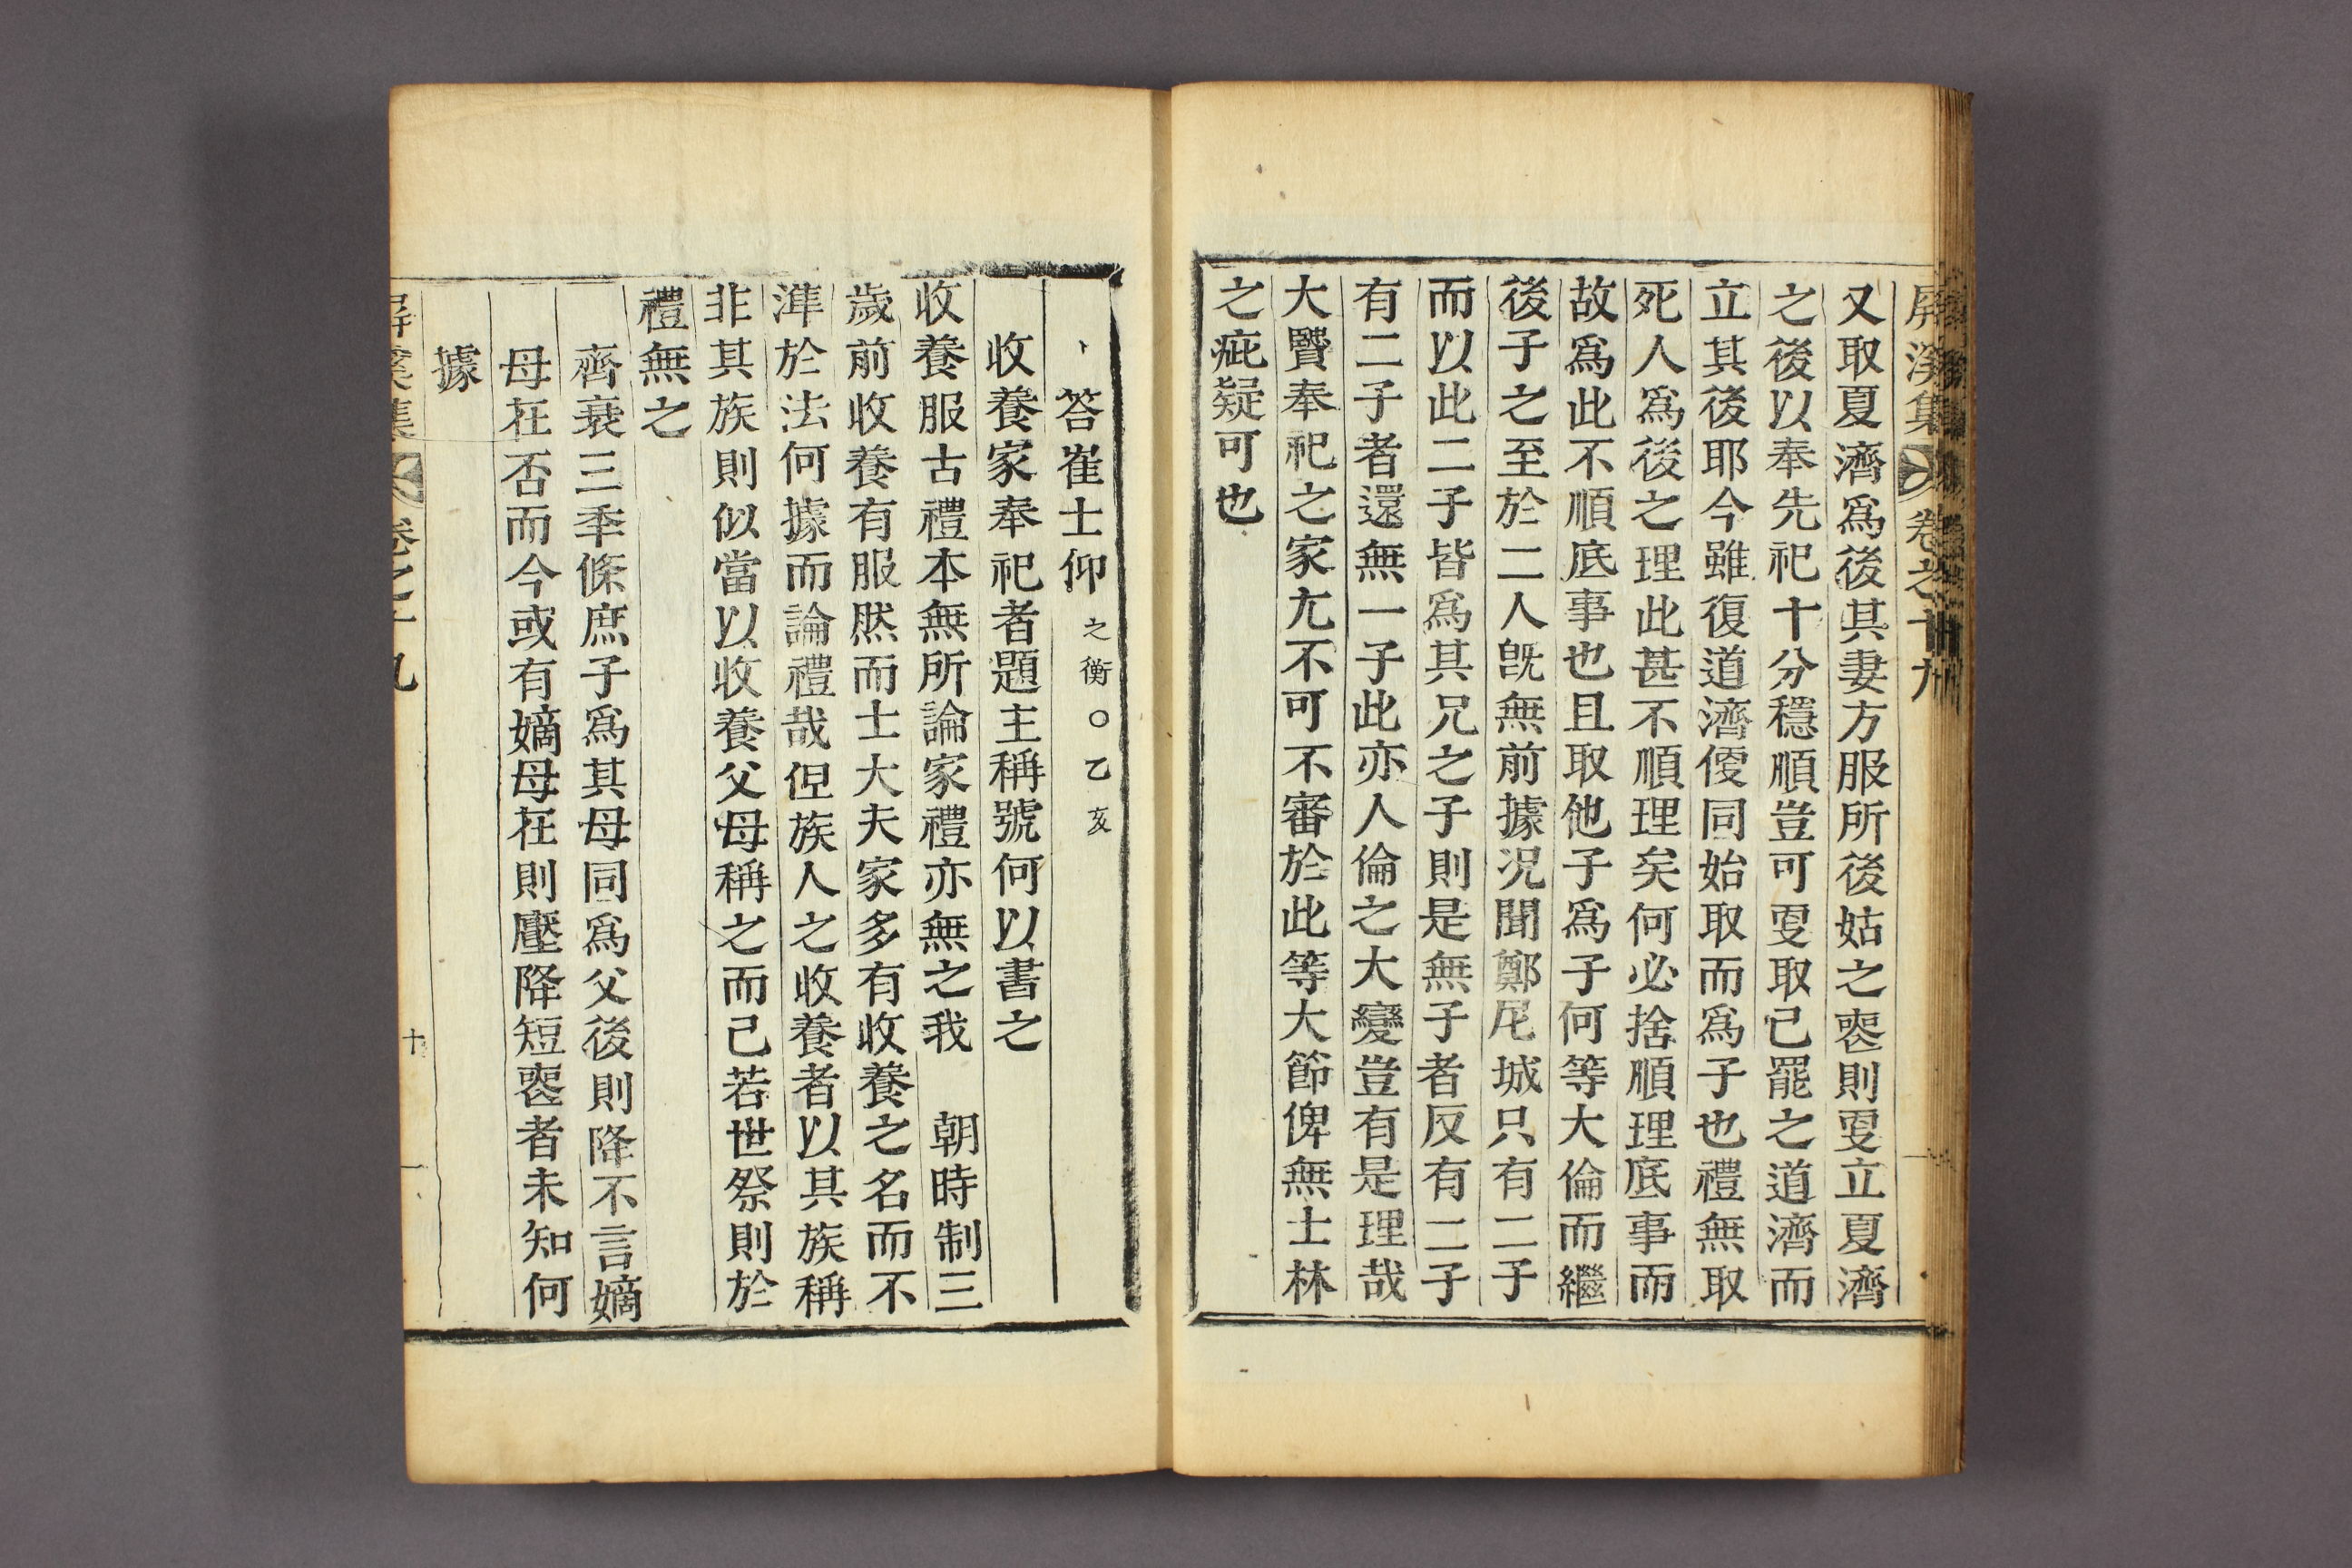 屛溪集 卷之十九
又取夏濟爲後其妻方服所後姑之喪則更立夏濟
之後以奉先祀十分穩順豈可更取已罷之道濟而
立其後耶今雖復道濟便同始取而爲子也禮無取
死人爲後之理此甚不順理矣何必捨順理底事而
故爲此不順底事也且取他子爲子何等大倫而繼
後子之至於二人旣無前據况聞鄭尼城只有二子
而以此二子皆爲其兄之子則是無子者反有二子
有二子者還無一子此亦人倫之大變豈有是理哉
大賢奉祀之家尤不可不審於此等大節俾無士林
之疵疑可也
答崔士仰 之衡○乙亥
收養家奉祀者題主稱號何以書之
收養服古禮本無所論家禮亦無之我 朝時制三
歲前收養有服然而士大夫家多有收養之名而不
準於法何據而論禮哉但族人之收養者以其族稱
非其族則似當以收養父母稱之而已若世祭則於
禮無之
齊衰三年條庶子爲其母同爲父後則降不言嫡
母在否而今或有嫡母在則壓降短喪者未知何
據
屛溪集 卷之十九 十一